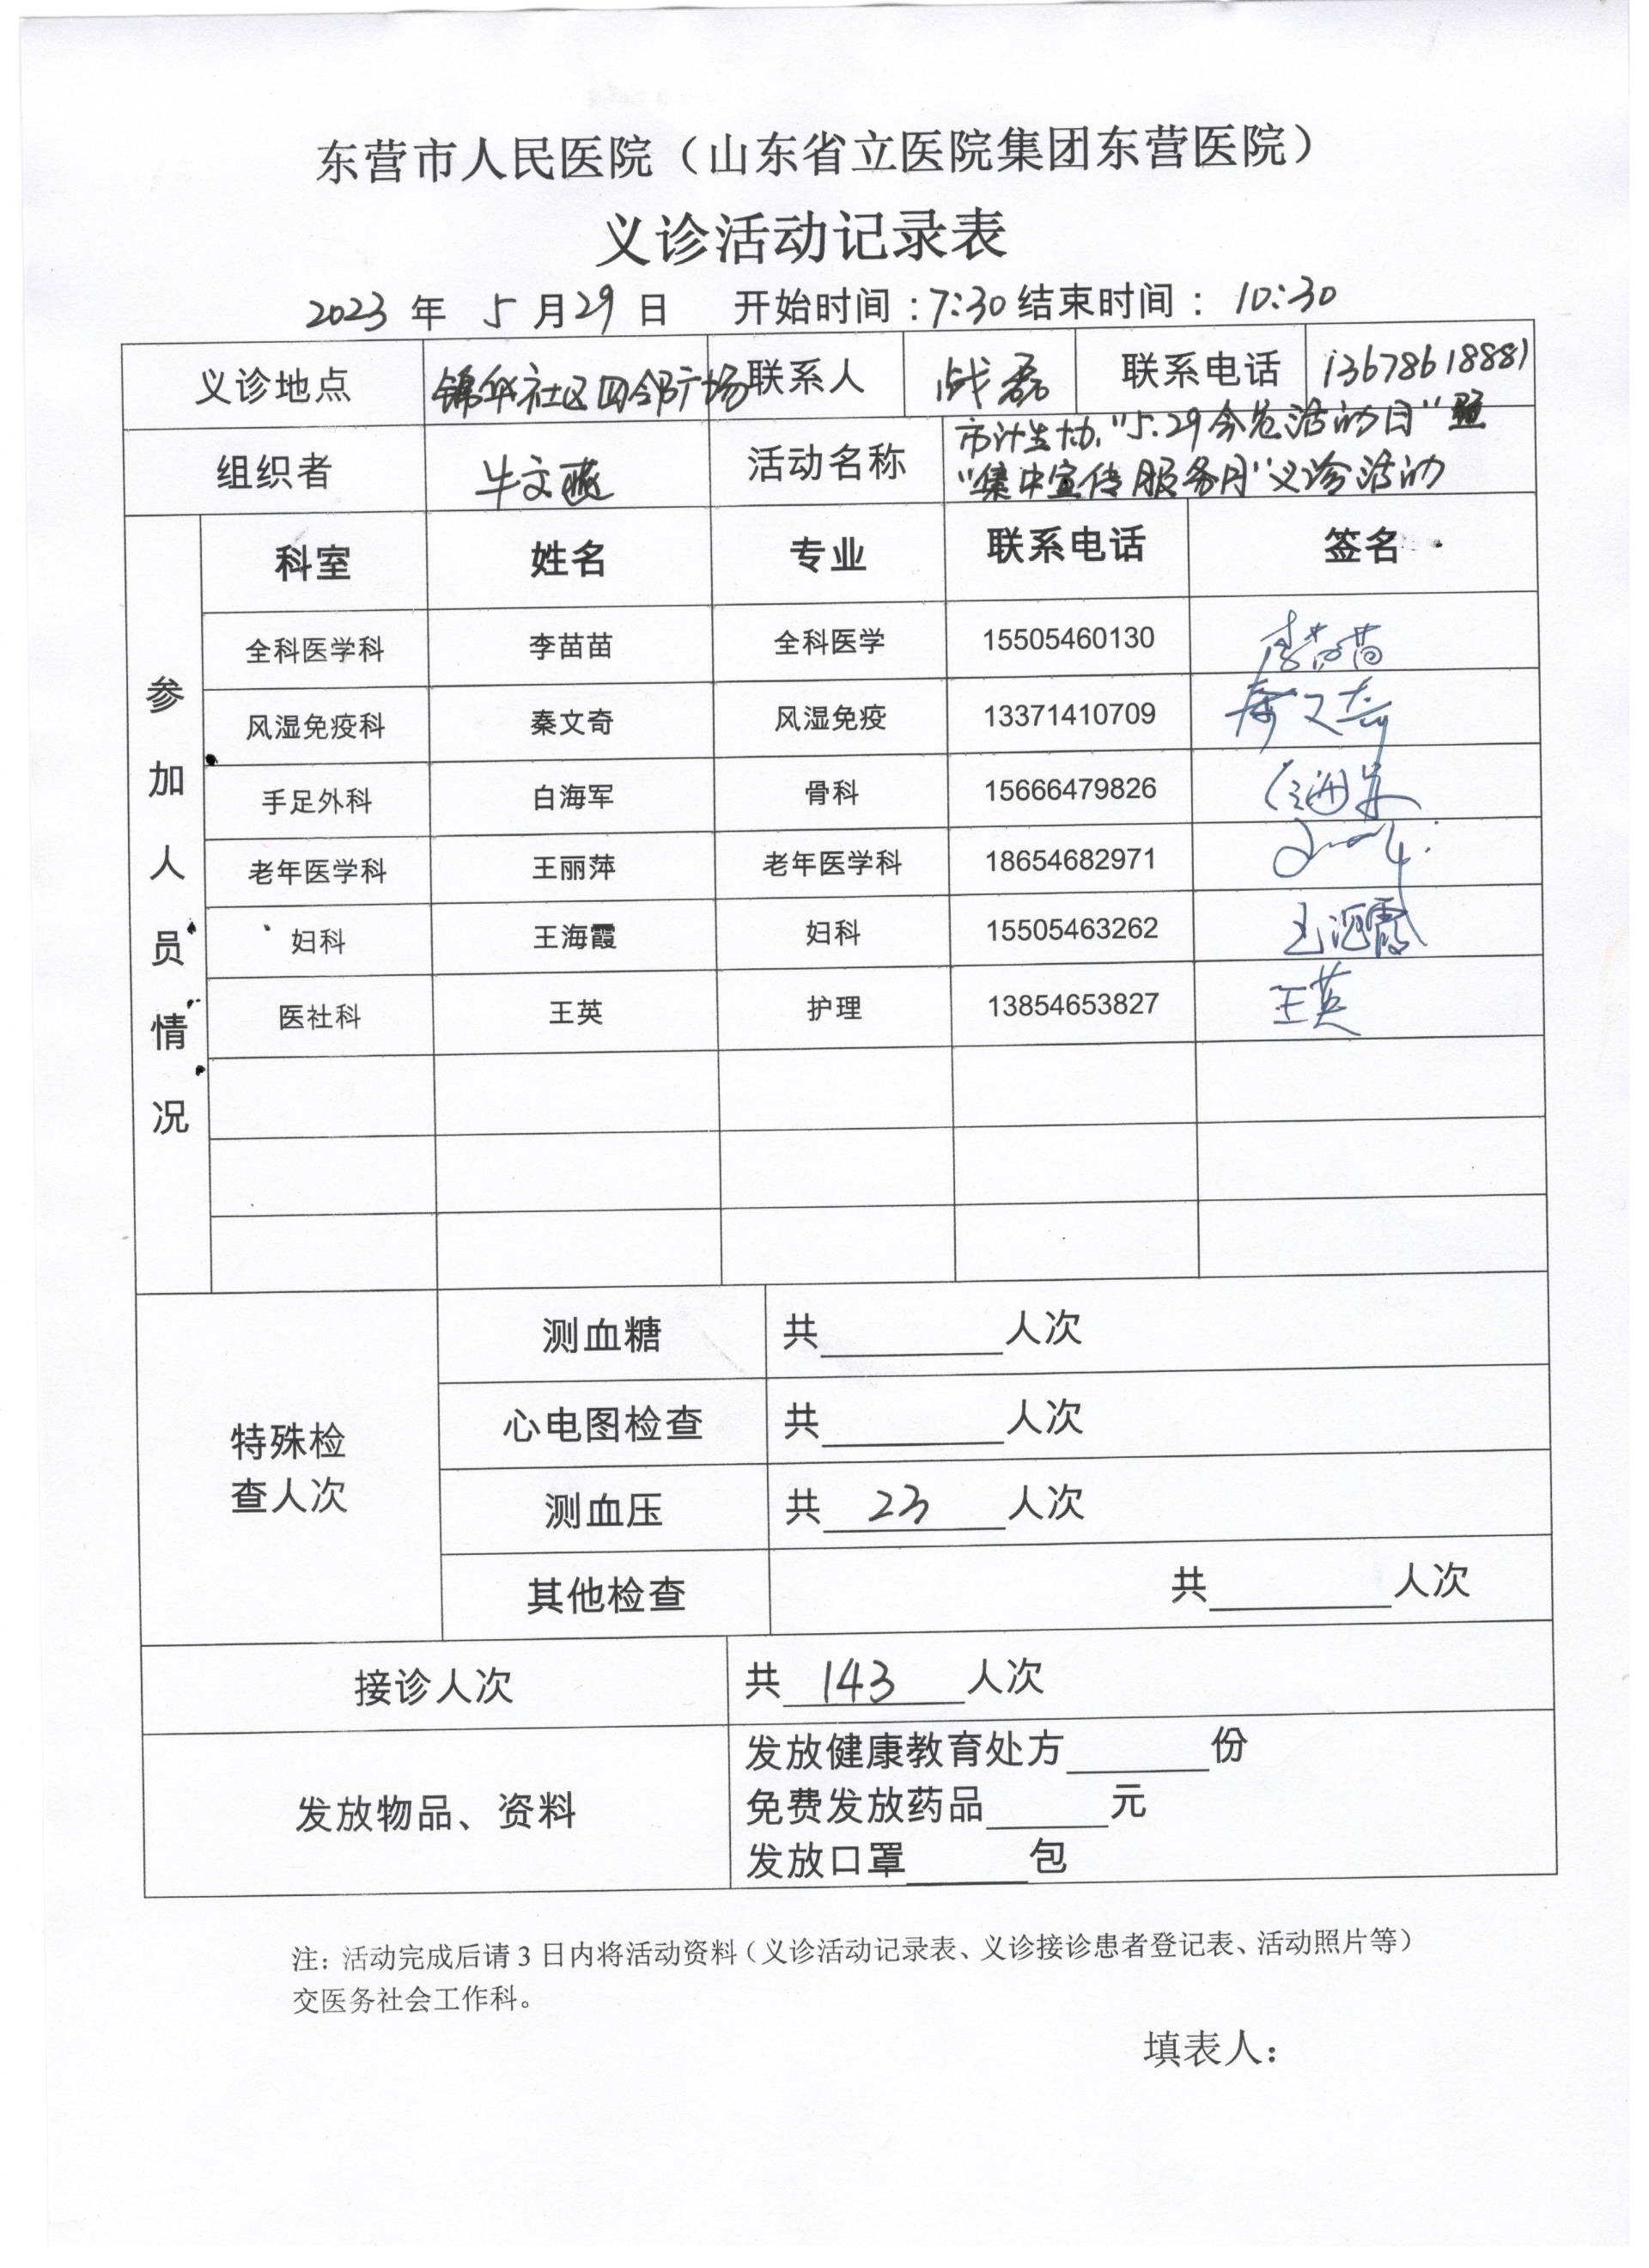 东营市人民医院（山东省立医院集团东营医院）
义诊活动记录表
2023 年 5 月 29 日 开始时间：7:30 结束时间： 10:30
义诊地点 锦华社区四邻广场 联系人 战磊 联系电话 13678618881
组织者 牛文燕 活动名称 市计生协"5.29会员活动日"暨
"集中宣传服务月"义诊活动
参加人员情况
科室 姓名 专业 联系电话 签名
全科医学科 李苗苗 全科医学 15505460130 李苗苗
风湿免疫科 秦文奇 风湿免疫 13371410709 秦文奇
手足外科 白海军 骨科 15666479826 白海军
老年医学科 王丽萍 老年医学科 18654682971
妇科 王海霞 妇科 15505463262 王海霞
医社科 王英 护理 13854653827 王英
特殊检
查人次
测血糖 共______人次
心电图检查 共______人次
测血压 共 23 人次
其他检查 共______人次
接诊人次 共 143 人次
发放物品、资料
发放健康教育处方______份
免费发放药品______元
发放口罩______包
注：活动完成后请 3 日内将活动资料（义诊活动记录表、义诊接诊患者登记表、活动照片等）
交医务社会工作科。
填表人：